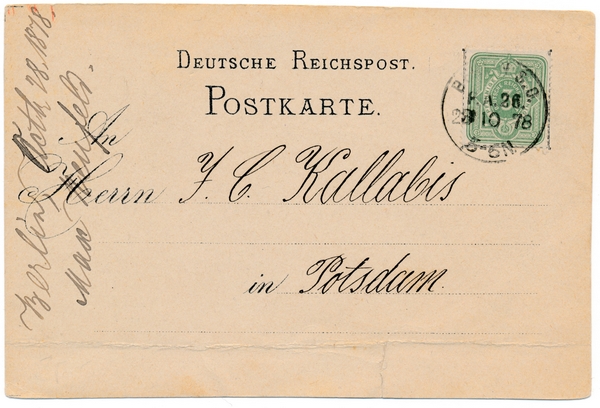 Deutsche Reichspost.
Postkarte.
An
Herrn F. C. Kallabis
in Potsdam.
Berlin 28, 1878
Max
28 10 78
5-6N